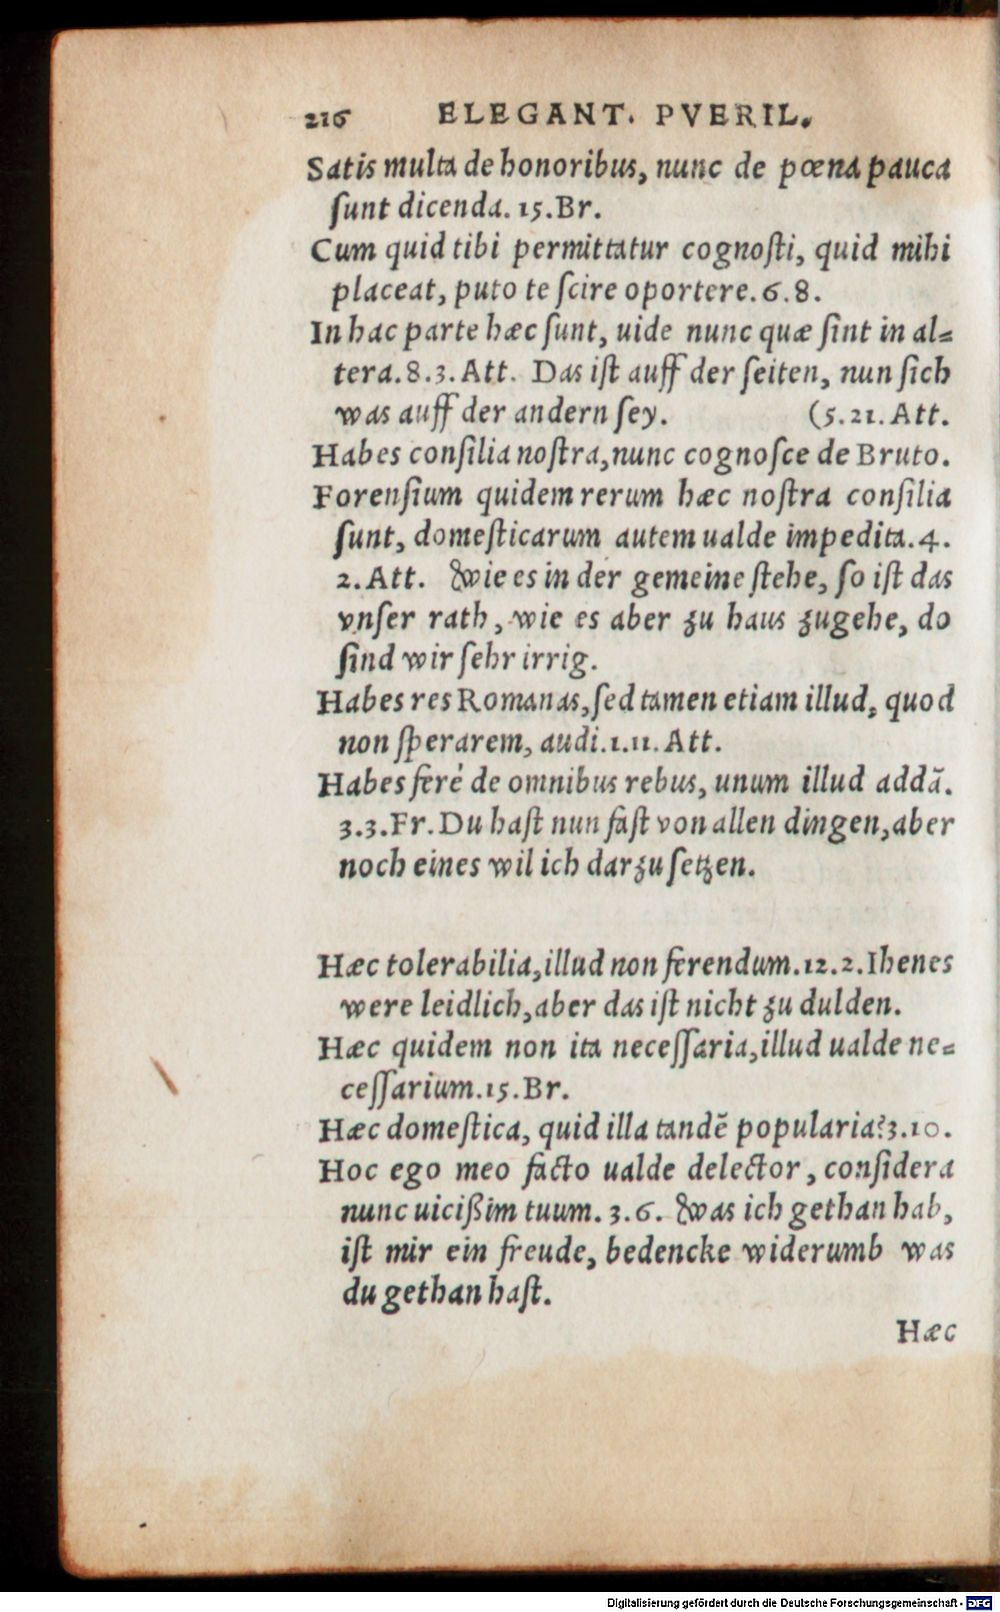 216 ELEGANT. PVERIL.
Satis multa de honoribus, nunc de pœna pauca
ſunt dicenda. 15. Br.
Cum quid tibi permittatur cognoſti, quid mihi
placeat, puto te ſcire oportere. 6. 8.
In hac parte hæc ſunt, uide nunc quæ ſint in al=
tera. 8. 3. Att. Das iſt auff der ſeiten, nun ſich
was auff der andern ſey. (5. 21. Att.
Habes conſilia noſtra, nunc cognoſce de Bruto.
Forenſium quidem rerum hæc noſtra conſilia
ſunt, domeſticarum autem ualde impedita. 4.
2. Att. Wie es in der gemeine ſtehe, ſo iſt das
vnſer rath, wie es aber zu haus zugehe, do
ſind wir ſehr irrig.
Habes res Romanas, ſed tamen etiam illud, quod
non ſperarem, audi. 1. 11. Att.
Habes ferè de omnibus rebus, unum illud addã.
3. 3. Fr. Du haſt nun faſt von allen dingen, aber
noch eines wil ich darzu ſetzen.
Hæc tolerabilia, illud non ferendum. 12. 2. Ihenes
were leidlich, aber das iſt nicht zu dulden.
Hæc quidem non ita neceſſaria, illud ualde ne=
ceſſarium. 15. Br.
Hæc domeſtica, quid illa tandẽ popularia? 3. 10.
Hoc ego meo facto ualde delector, conſidera
nunc uicißim tuum. 3. 6. Was ich gethan hab,
iſt mir ein freude, bedencke widerumb was
du gethan haſt.
Hæc
Digitalisierung gefördert durch die Deutsche Forschungsgemeinschaft - DFG